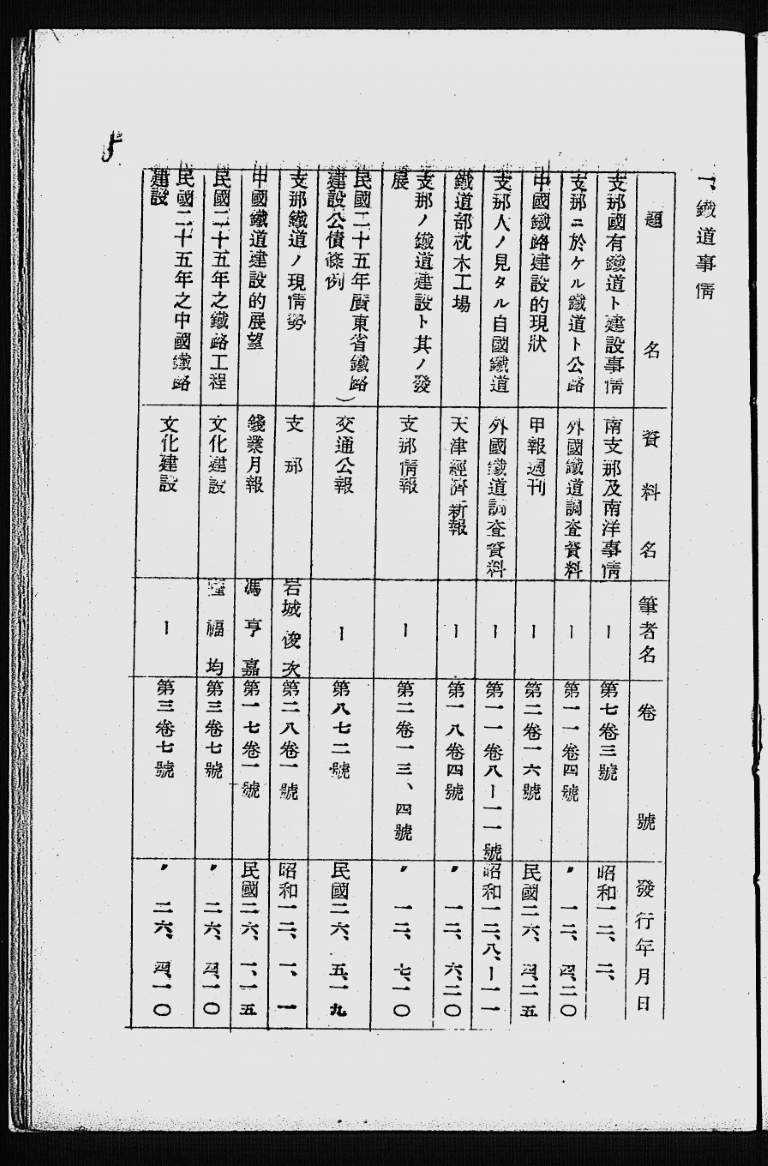 一、鐵道事情
題名 資料名 筆者名 卷號 發行年月日
支那國有鐵道ト建設事情 南支那及南洋事情 ー 第七卷三號 昭和一二、二、
支那ニ於ケル鐵道ト公路 外國鐵道調査資料 ー 第一一卷四號 〃 一二、四、二〇
中國鐵路建設的現狀 申報週刊 ー 第二卷一六號 民國二六、四、二五
支那人ノ見タル自國鐵道 外國鐵道調査資料 ー 第一一卷八ー一一號 昭和一二、八、ー一一
鐵道部枕木工場 天津經濟新報 ー 第一八卷四號 〃 一二、六、二〇
支那ノ鐵道建設ト其ノ發
展 支那情報 ー 第二卷一三、四號 〃 一二、七、一〇
民國二十五年廣東省鐵路
建設公債條例 交通公報 ー 第八七二號 民國二六、五、一九
支那鐵道ノ現情勢 支那 岩城俊次 第二八卷一號 昭和一二、一、一
中國鐵道建設的展望 錢業月報 馮亨嘉 第一七卷一號 民國二六、一、一五
民國二十五年之鐵路工程 文化建設 福均 第三卷七號 〃 二六、四、一〇
民國二十五年之中國鐵路
建設 文化建設 ー 第三卷七號 〃 二六、四、一〇